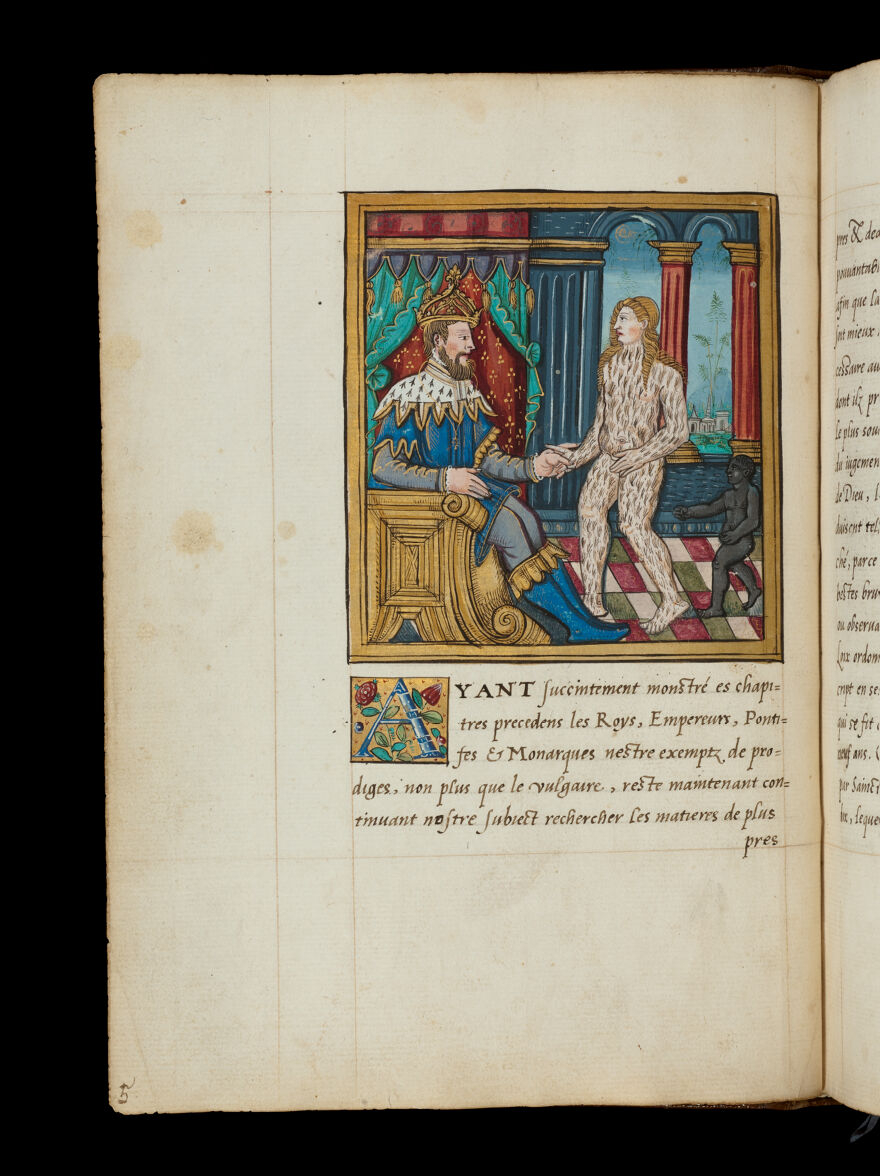 AYANT succintement monstré es chapi=
tres precedens les Roys, Empereurs, Ponti=
fes & Monarques nestre exemptz de pro=
diges, non plus que le vulgaire, reste maintenant con=
tinuant nostre subiect rechercher les matieres de plus
pres
5
pres & de
pouuantab
afin que la
soit mieux
cessaire au
dont ilz pr
le plus sou
du iugemen
de Dieu, l
duisent tel
ché, parce
bestes bru
ou obserua
Loix ordon
cript en se
qui se fit
neuf ans.
par Sainct
lieque